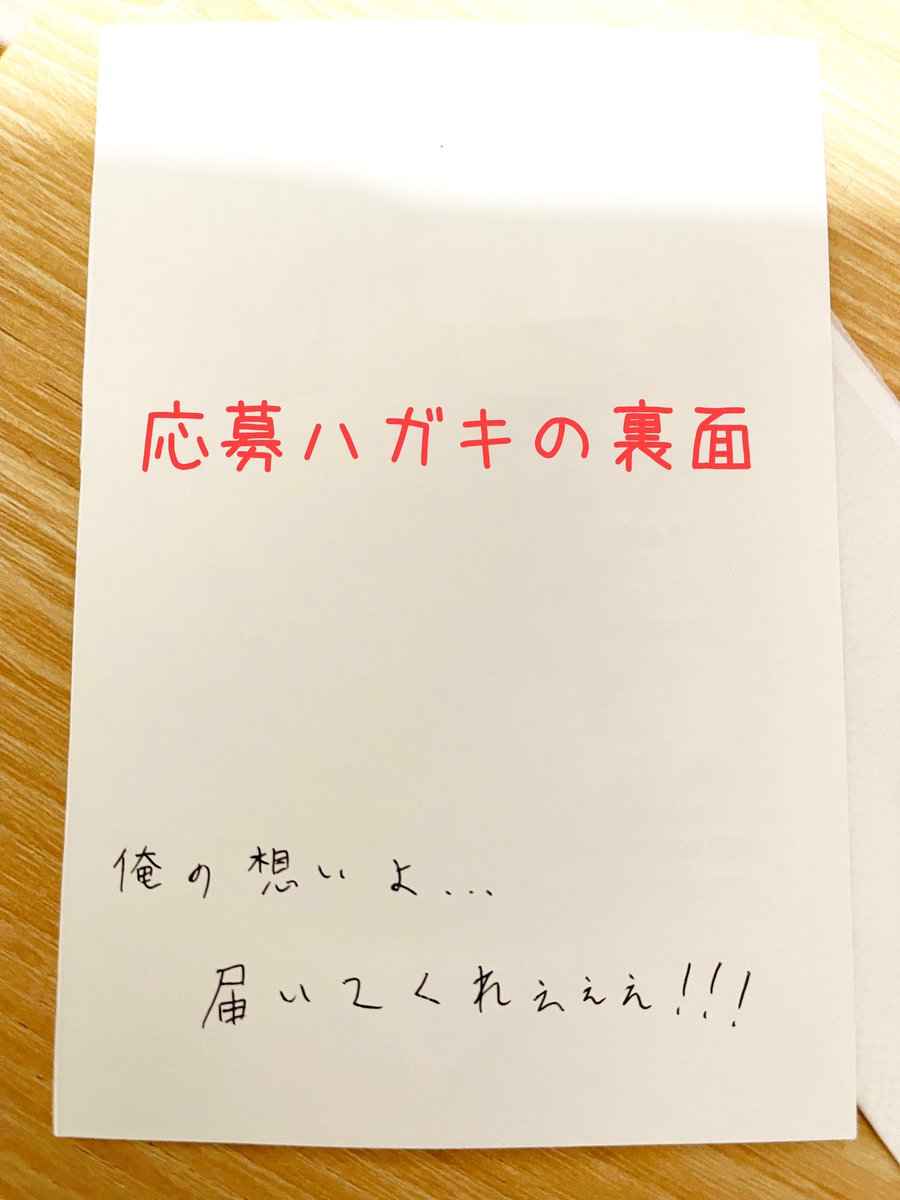 応募ハガキの裏面
俺の想いよ...
届いてくれぇぇぇ!!!